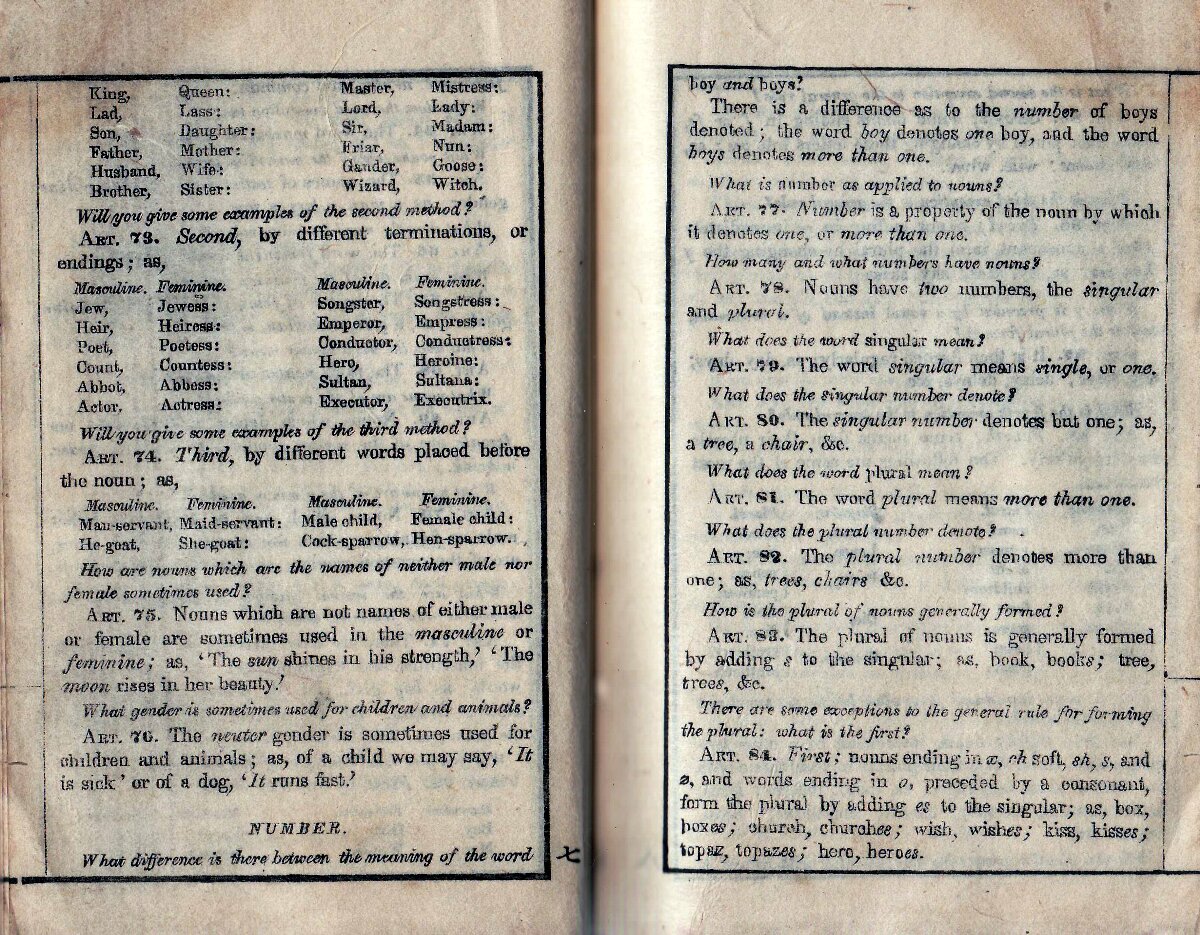 King, Queen: Master, Mistress:
Lad, Lass: Lord, Lady:
Son, Daughter: Sir, Madam:
Father, Mother: Friar, Nun:
Husband, Wife: Gander, Goose:
Brother, Sister: Wizard, Witch.
Will you give some examples of the second method?
ART. 73. Second, by different terminations, or
endings; as,
Masculine. Feminine. Masculine. Feminine.
Jew, Jewess: Songster, Songstress:
Heir, Heiress: Emperor, Empress:
Poet, Poetess: Conductor, Conductress:
Count, Countess: Hero, Heroine:
Abbot, Abbess: Sultan, Sultana:
Actor, Actress: Executor, Executrix.
Will you give some examples of the third method?
ART. 74. Third, by different words placed before
the noun; as,
Masculine. Feminine. Masculine. Feminine.
Man-servant, Maid-servant: Male child, Female child:
He-goat, She-goat: Cock-sparrow, Hen-sparrow.
How are nouns which are the names of neither male nor
female sometimes used?
ART. 75. Nouns which are not names of either male
or female are sometimes used in the masculine or
feminine; as, 'The sun shines in his strength,' 'The
moon rises in her beauty.'
What gender is sometimes used for children and animals?
ART. 76. The neuter gender is sometimes used for
children and animals; as, of a child we may say, 'It
is sick' or of a dog, 'It runs fast.'
NUMBER.
What difference is there between the meaning of the word
x
boy and boys?
There is a difference as to the number of boys
denoted; the word boy denotes one boy, and the word
boys denotes more than one.
What is number as applied to nouns?
ART. 77. Number is a property of the noun by which
it denotes one, or more than one.
How many and what numbers have nouns?
ART. 78. Nouns have two numbers, the singular
and plural.
What does the word singular mean?
ART. 79. The word singular means single, or one.
What does the singular number denote?
ART. 80. The singular number denotes but one; as,
a tree, a chair, &c.
What does the word plural mean?
ART. 81. The word plural means more than one.
What does the plural number denote?
ART. 82. The plural number denotes more than
one; as, trees, chairs &c.
How is the plural of nouns generally formed?
ART. 83. The plural of nouns is generally formed
by adding s to the singular; as, book, books; tree,
trees, &c.
There are some exceptions to the general rule for forming
the plural: what is the first?
ART. 84. First; nouns ending in x, ch soft, sh, s, and
z, and words ending in o, preceded by a consonant,
form the plural by adding es to the singular; as, box,
boxes; church, churches; wish, wishes; kiss, kisses;
topaz, topazes; hero, heroes.